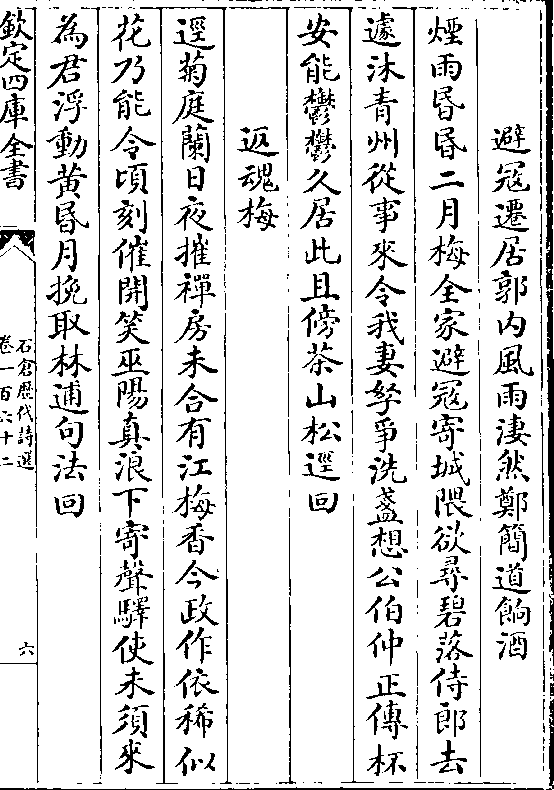 避冦遷居郭内風雨淒然鄭簡道餉酒
煙雨昏昏二月梅全家避冦寄城隈欲尋碧落侍郎去
遽沐青州從事來令我妻孥爭洗盞想公伯仲正傳杯
安能鬱鬱久居此且傍茶山松逕回
返魂梅
逕菊庭蘭日夜摧禪房未合有江梅香今政作依稀似
花乃能令頃刻催開笑巫陽真浪下寄聲驛使未須來
為君浮動黃昏月挽取林逋句法回
欽定四庫全書
石倉歴代詩選
卷一百六十二
六